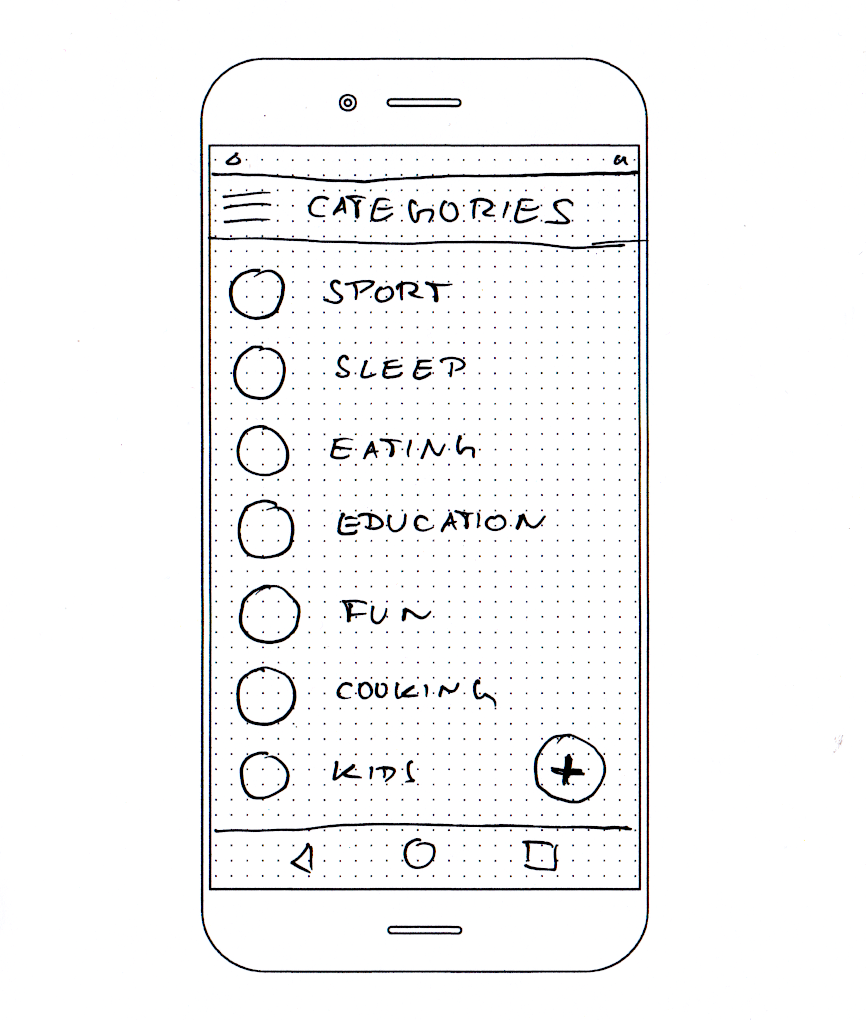 CATEGORIES
SPORT
SLEEP
EATING
EDUCATION
FUN
COOKING
KIDS
+